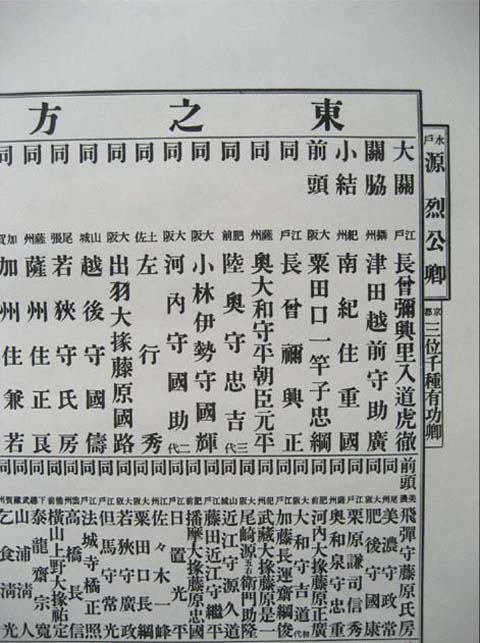 東之方
水戶 源烈公卿
京都 三位千種有功卿
大關 江戶 長曾彌興里入道虎徹
關脇 攝州 津田越前守助廣
小結 紀州 南紀住重國
前頭 大阪 粟田口一竿子忠綱
同 江戶 長曾禰興正
同 薩州 奧大和守平朝臣元平
同 肥前 陸奧守忠吉 三代
同 大阪 小林伊勢守國輝
同 大阪 河內守國助 二代
同 土佐 左行秀
同 大阪 出羽大掾藤原國路
同 山城 越後守國儔
同 尾張 若狹守氏房
同 薩州 薩州住正良
同 加賀 加州住兼若
前頭 美濃 飛彈守藤原氏房
同 美濃守政常
同 大阪 肥後守國康
同 江戶 栗原謙司信秀
同 薩州 奧和泉守忠重
同 肥前 河內大掾藤原正廣
同 大阪 大和守吉道
同 江戶 加藤長運齋綱俊
同 武藏大掾藤原是一
同 大阪 尾崎源五右衛門助隆
同 山城 近江守源久道
同 江戶 藤田近江守繼平
同 肥前 播磨大掾藤原忠國
同 江戶 日置光平
同 佐々木一峰
同 大阪 粟田口長綱
同 大阪 若狹守廣政
同 江戶 但馬守常光
同 江戶 法城寺橘正照
同 雲州 高橋長信
同 備前 橫山上野大掾祐定
同 泰龍齋宗寬
同 山浦淸人
同 乞食淸光